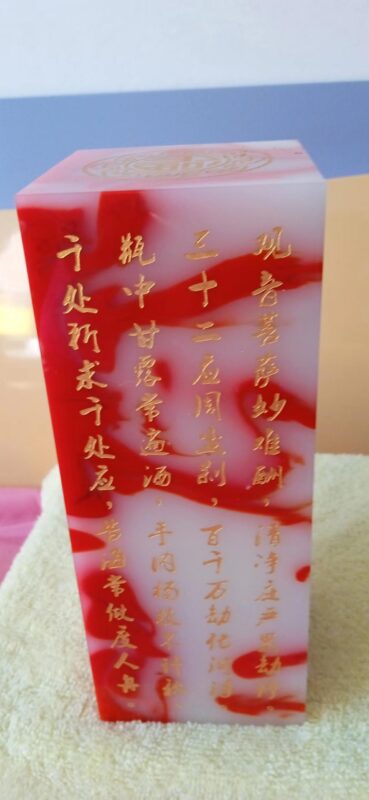 观音菩萨妙难酬，清净庄严累劫修。
三十二应周尘刹，百千万劫化阎浮。
瓶中甘露常遍洒，手内杨枝不计秋。
千处祈求千处应，苦海常做度人舟。